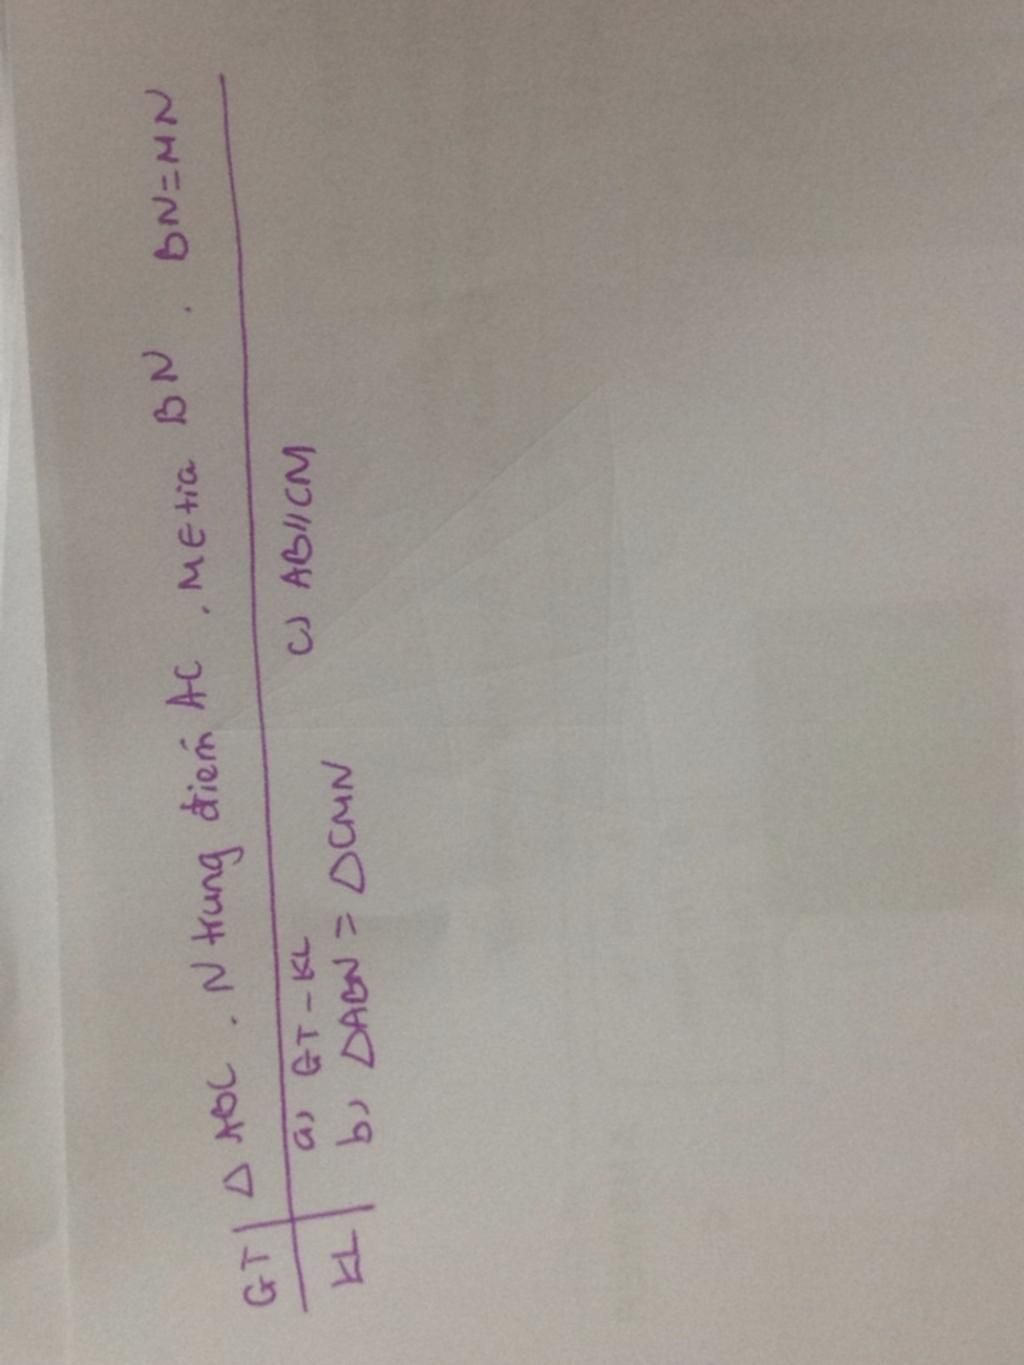 GT | Δ ABC . N trung điểm AC , M ∈ tia BN . BN = MN
KL | a) GT - KL
b) ΔABN = ΔCMN c) AB // CM